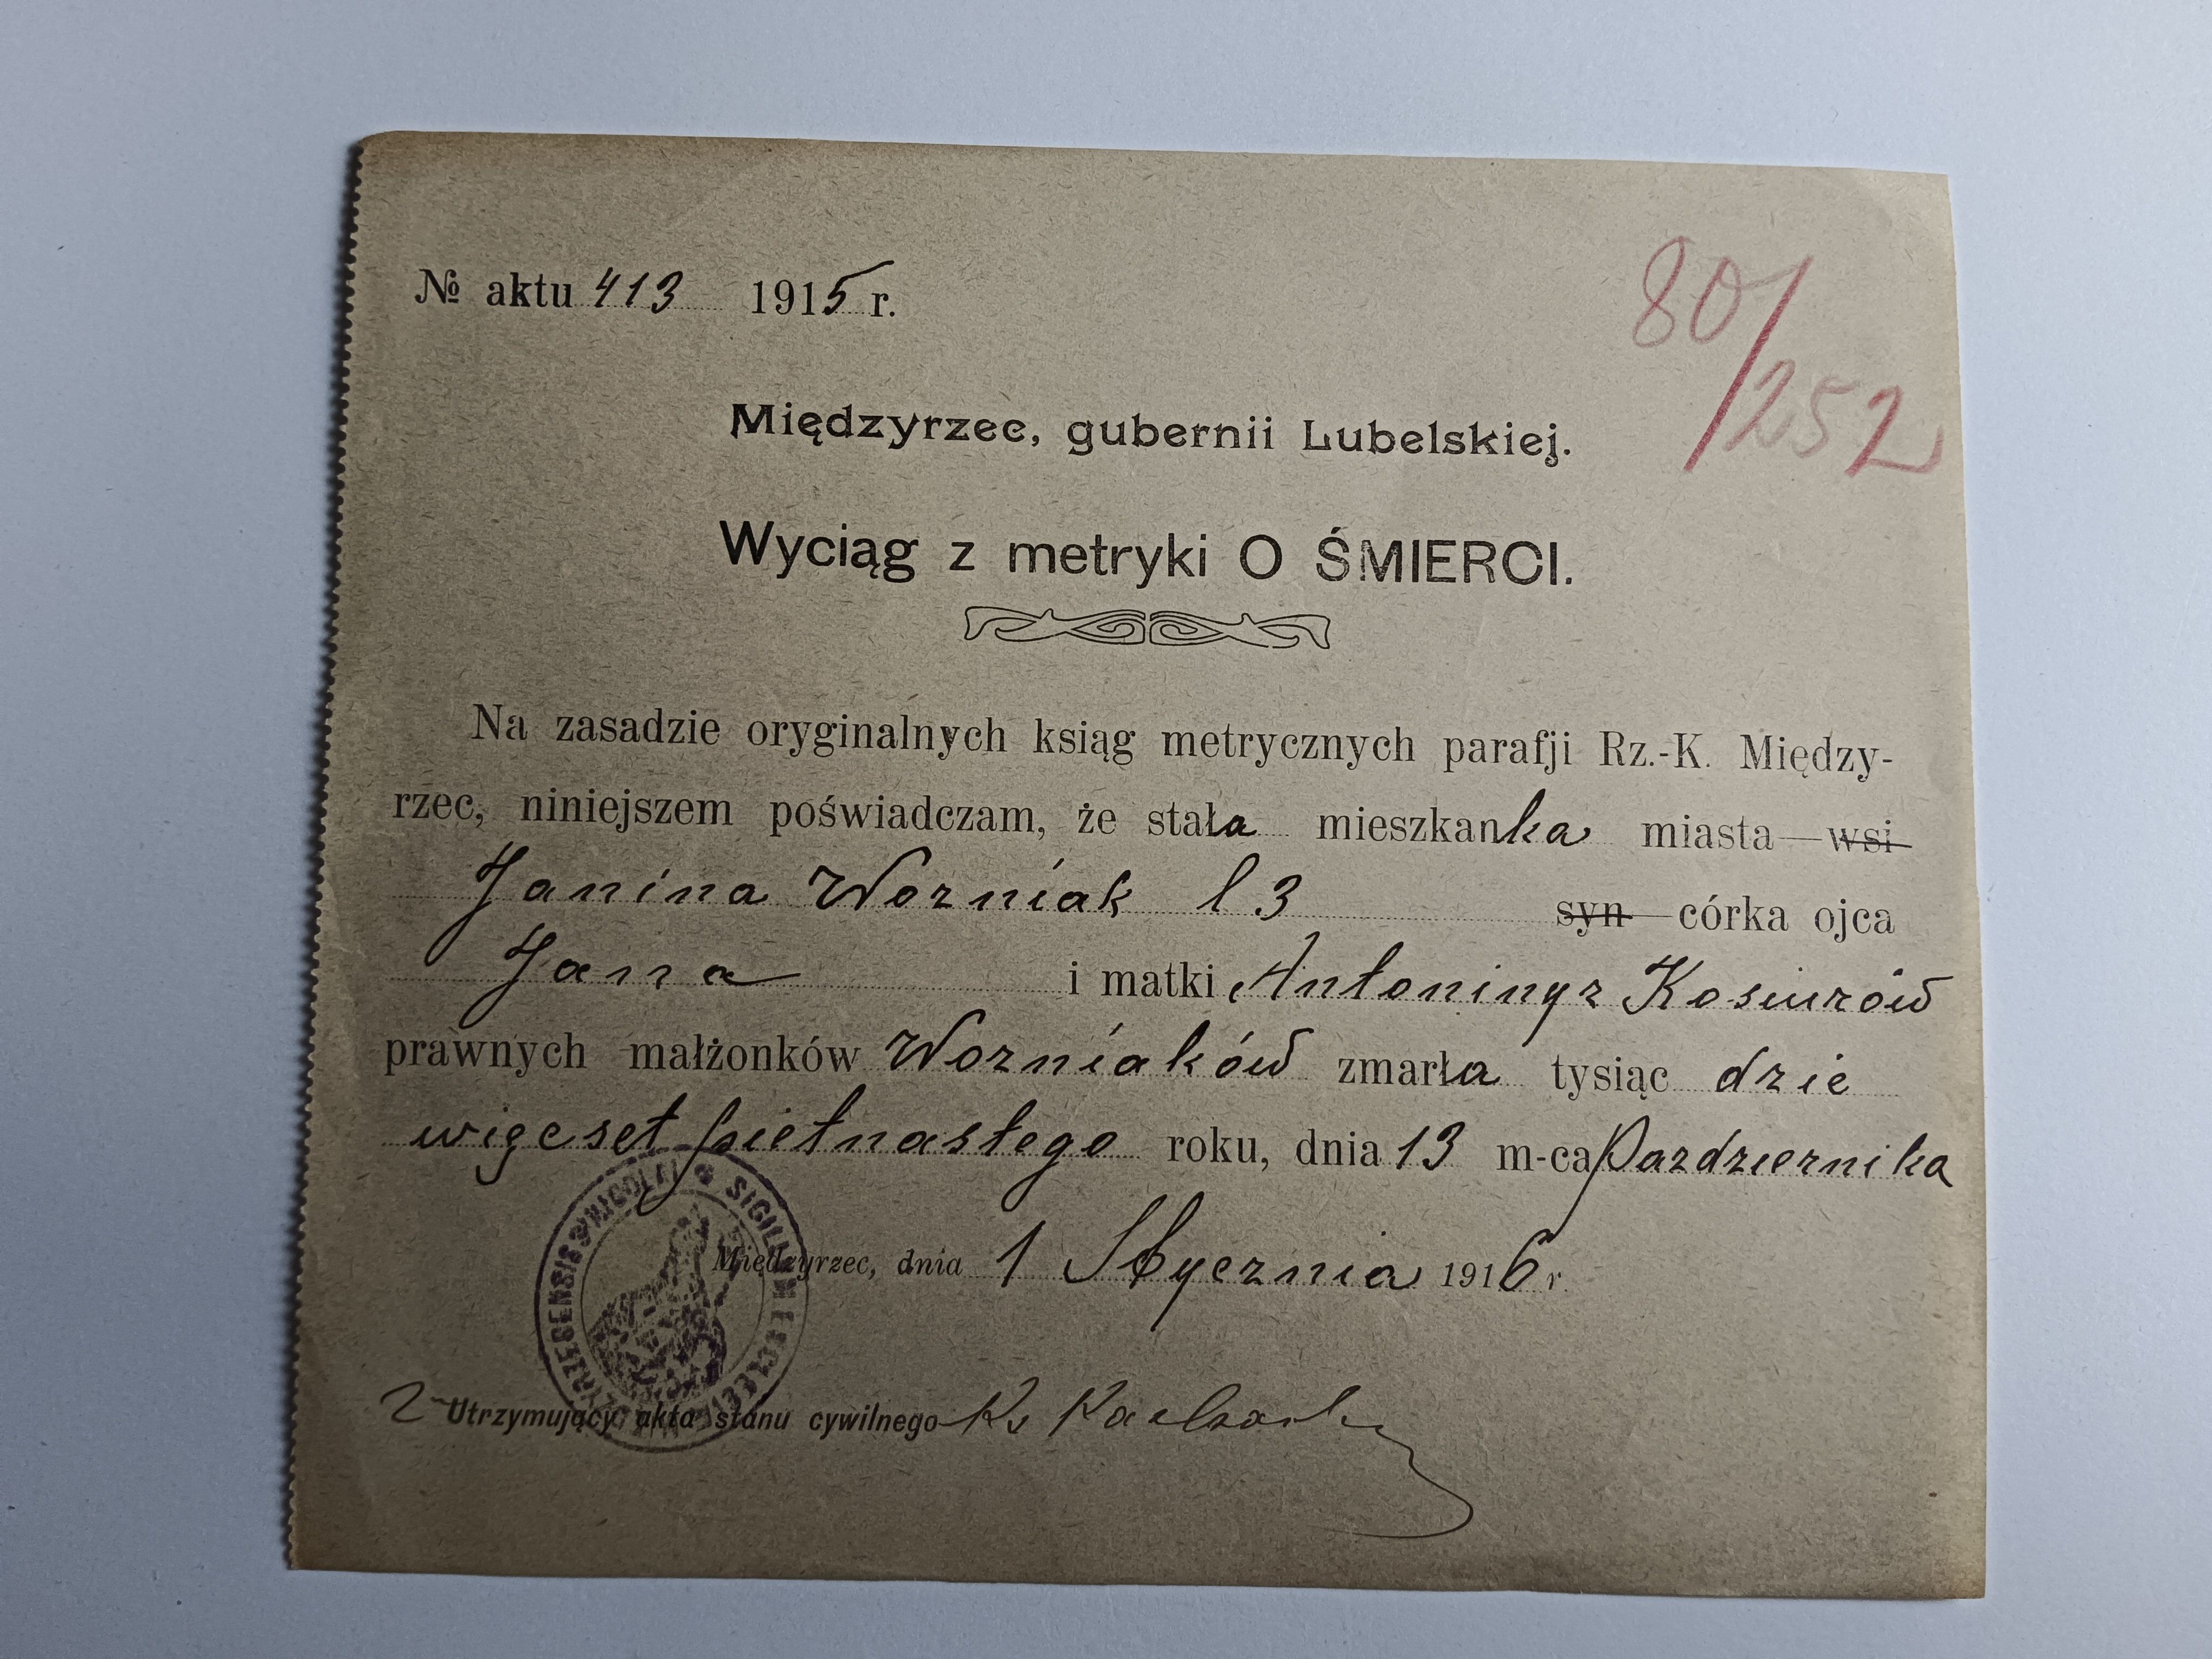 № aktu 413 1915 r.
80/252
Międzyrzec, gubernii Lubelskiej.
Wyciąg z metryki O ŚMIERCI.
Na zasadzie oryginalnych ksiąg metrycznych parafji Rz.-K. Między-
rzec, niniejszem poświadczam, że stała mieszkanka miasta wsi
Janina Wozniak l 3 syn córka ojca
Jana i matki Antoniny z
prawnych małżonków Wozniaków zmarła tysiąc dzie
więcset piętnastego roku, dnia 13 m-ca Pazdziernika
Międzyrzec, dnia 1 Stycznia 1916 r.
Utrzymujący akta stanu cywilnego Ks